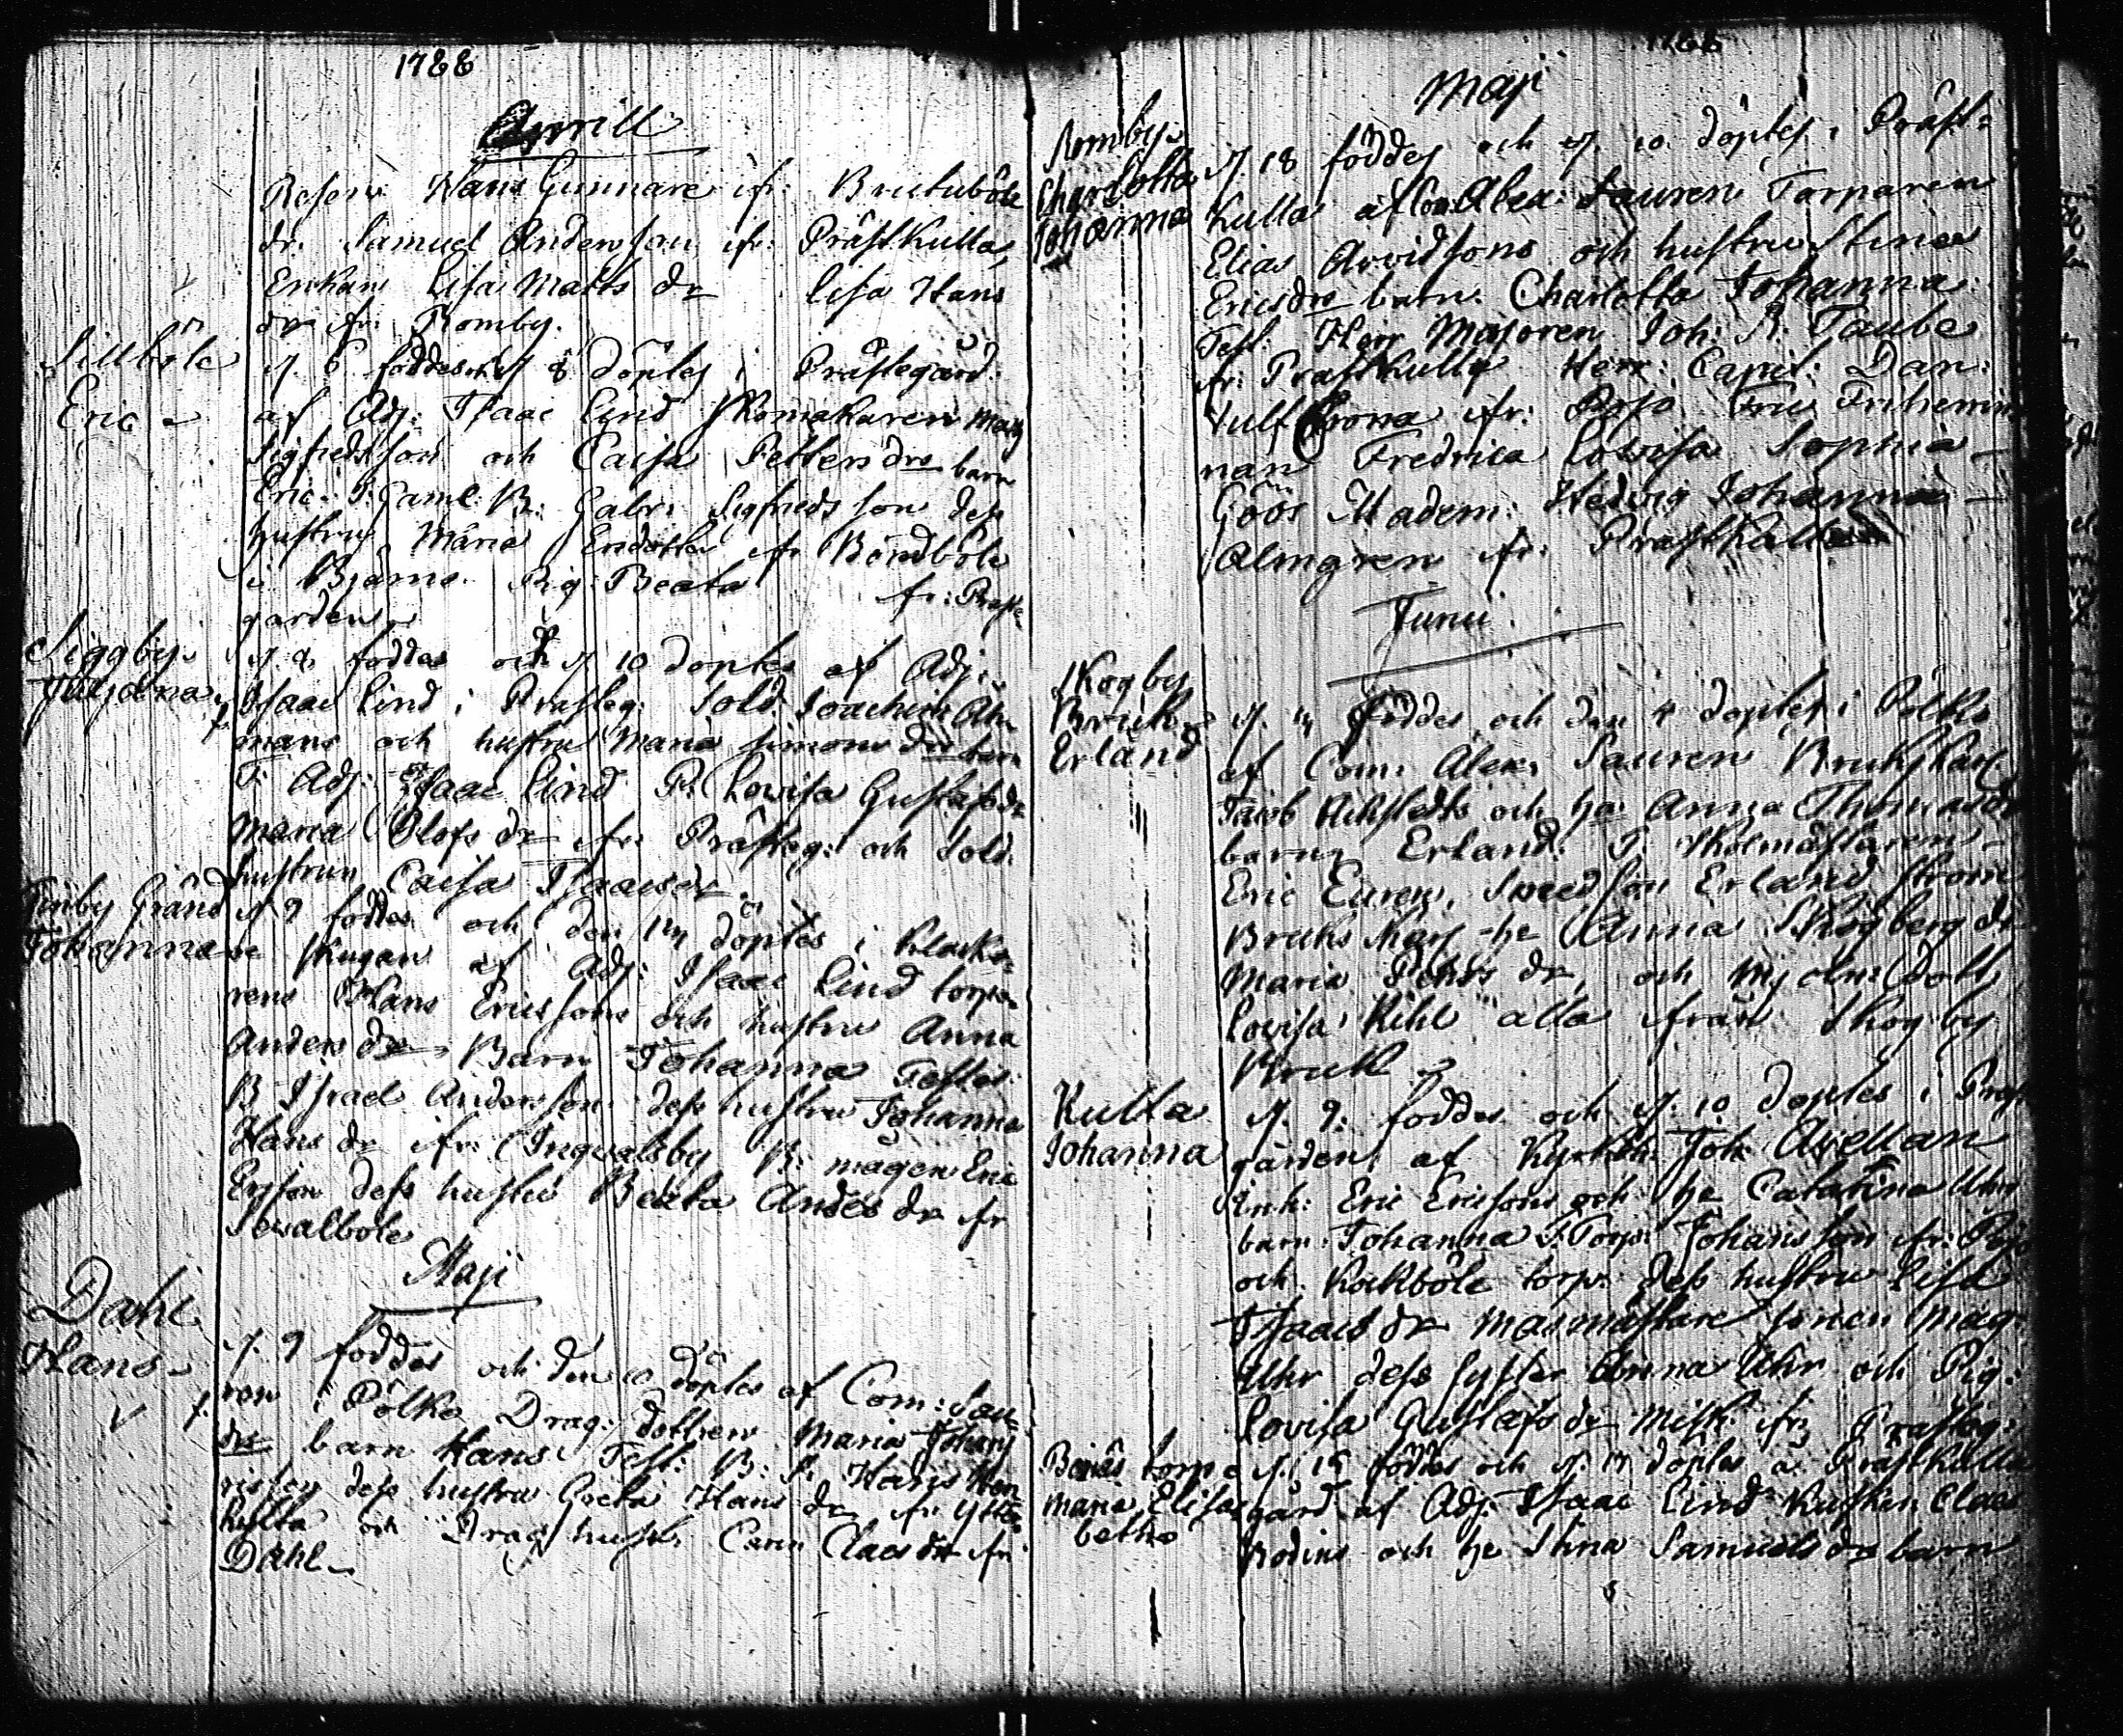 1788
Aprill
Hans Gunnare ifr: Brutuböle
dr. Samuel Anderson ifr: Prästkulla,
Enkan Lisa Matts dr Lisa Hans
dr ifr: Romby.
Sillböle
Eric
d. 6 föddes och d 8 döptes i Prästegård:
af Adj: Isaac Lind Skomakaren
Sigfredsson och Caisa Petters drs barn
Eric. T: Gaml: B: Gabr: Sigfredsson dess
hustru Maria ifr Böndböle
i Bjerno Pig: Beata fr: Präste
garden
Siggby
d. 8 foddes och d 10 doptes af Adj:
Isaac Lind i Prästeg: Sold: Joachim
mans och hustru Maria Simons drs barn
T: Adj: Isaac Lind P. Lovisa Gustafsdr
Maria Olofs dr ifr: Prästeg: och Sold:
hustrun Caisa Isaacsdr.
Finby Gränd
Johanna
d 9 foddes och den döptes i Klocka-
re stugan af Adj: Isaac Lind torpa-
rens Hans Ericssons och hustru Anna
Anders drs Barn Johanna Testes:
B Israel Anderson dess hustru Johanna
Hans dr ifr: Ingvalsby B: mågen Eric
Ersson dess hustru Beata Anders dr ifr
Sevalböle
Maji
Dahl
Hans
d. 9 foddes och den 10 döptes af Com: Sau-
ren i Pölkö Drag: dottren Maria Johans
drs barn Hans. Test: B: S. Hans Hen
ricsson dess hustru Greta Hans dr ifr: Ytter
kulla och Drag hustr: Carin Claes dr ifr:
Dahl
1788
Maji
Romby
Charlotta
Johanna
d. 18 föddes och d. 20 döptes i Präst-
kulla af Com: Alex: Sauren Torparen
Elias Arvidsons och hustru Stina
Ericsdrs barn. Charlotta Johanna.
Test: Herr Majoren Joh: R: Taube
ifr: Prästkulla Herr: Capit: Dan:
Vulfcrona ifr: Pojo Fru Friherrin
nan Fredrica Lovisa Sophia
Göös Madem: Hedvig Johanna
Almgren ifr: Prästkulla
Junii
Skogby
Bruk
Erland
d. föddes och den 4 doptes i Pölkö
af Com: Alex: Sauren Bruks karl
Jacob och he Anna Thomasdr
barn Erland. T: Skolmästaren
Eric Euren, Smedson Erland Ström
Bruks karls he Anna Skogberg dr
Maria Pehrs dr, och Mjöln: dott
Lovisa Kihl alla ifrån Skogby
Bruk
Kulla
Johanna
d. 9. foddes och d. 10 doptes i Präst
gården af Kyrkoh: Joh Avellan
Inh: Eric Ericsons och he Catarina Uhr
barn Johanna T: Torp: Johansson ifr: Pojo
och Kockböle torp: dess hustru Lisa
Isaacs dr Masmästare sonen Mag:
Uhr dess syster Anna Uhr och Pig:
Lovisa Gustafs dr ifr: Prästeg:
torp
Maria Elisa
betha
d. 15 föddes och d. 17 döptes å Prästkulla
gård af Adj: Isaac Lind Kusken Claes
Rodins och he Stina Samuels drs barn